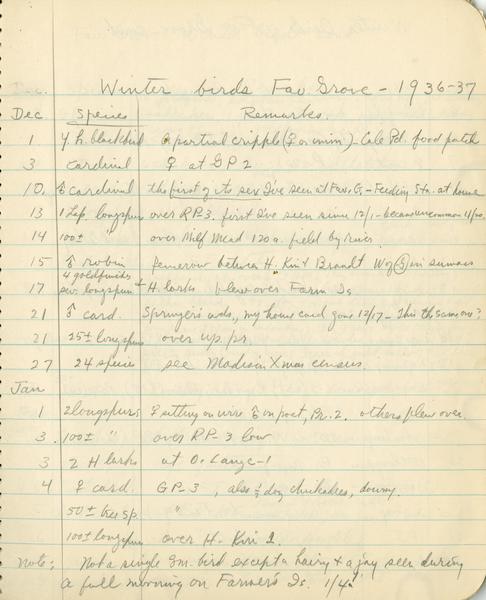 Winter birds Fav. Grove - 1936-37
Dec Species Remarks.
1 Y. h. blackbird A partial cripple (♀ or imm) - Cole Pd. food patch
3 cardinal ♀ at GP 2
10, ♂ cardinal the first of its sex I've seen at Fav. G. - Feeding Sta. at home
13 1 Lap. longspur over RP-3. first I've seen since 12/1 - became uncommon 11/20.
14 100± " over Milf Mead 120 a. field by river.
15 ♂ robin fencerow between H. Kin & Brandt in sumacs
4 goldfinches
17 sev. longspur + H. larks flew over Farm Is
21 ♂ card. Springer's wds., my home card gone 12/17 - This the same one?
21 25± longspurs over up. pr.
27 24 species see Madison Xmas census.
Jan
1 2 longspurs ♀ sitting on wire ♂ on post, Pr. 2. others flew over.
3. 100± " over RP-3 low
3 2 H larks at O. Lange-1
4 ♀ card. GP-3, also ½ doz chickadees, downy.
50± tree sp. "
100± longspurs over H. Kin 2.
Note; Not a single Im. bird except a hairy & a jay seen during
a full morning on Farmer's Is. 1/4